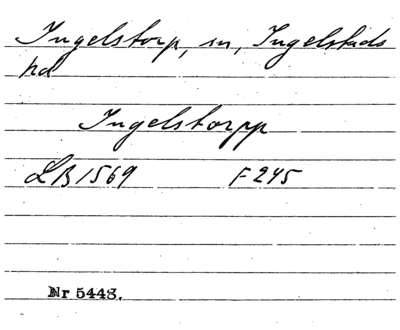 Ingelstorp, sn, Ingelstads
hd
Ingelstorpp
LB 1569 F 245
Nr 5448.